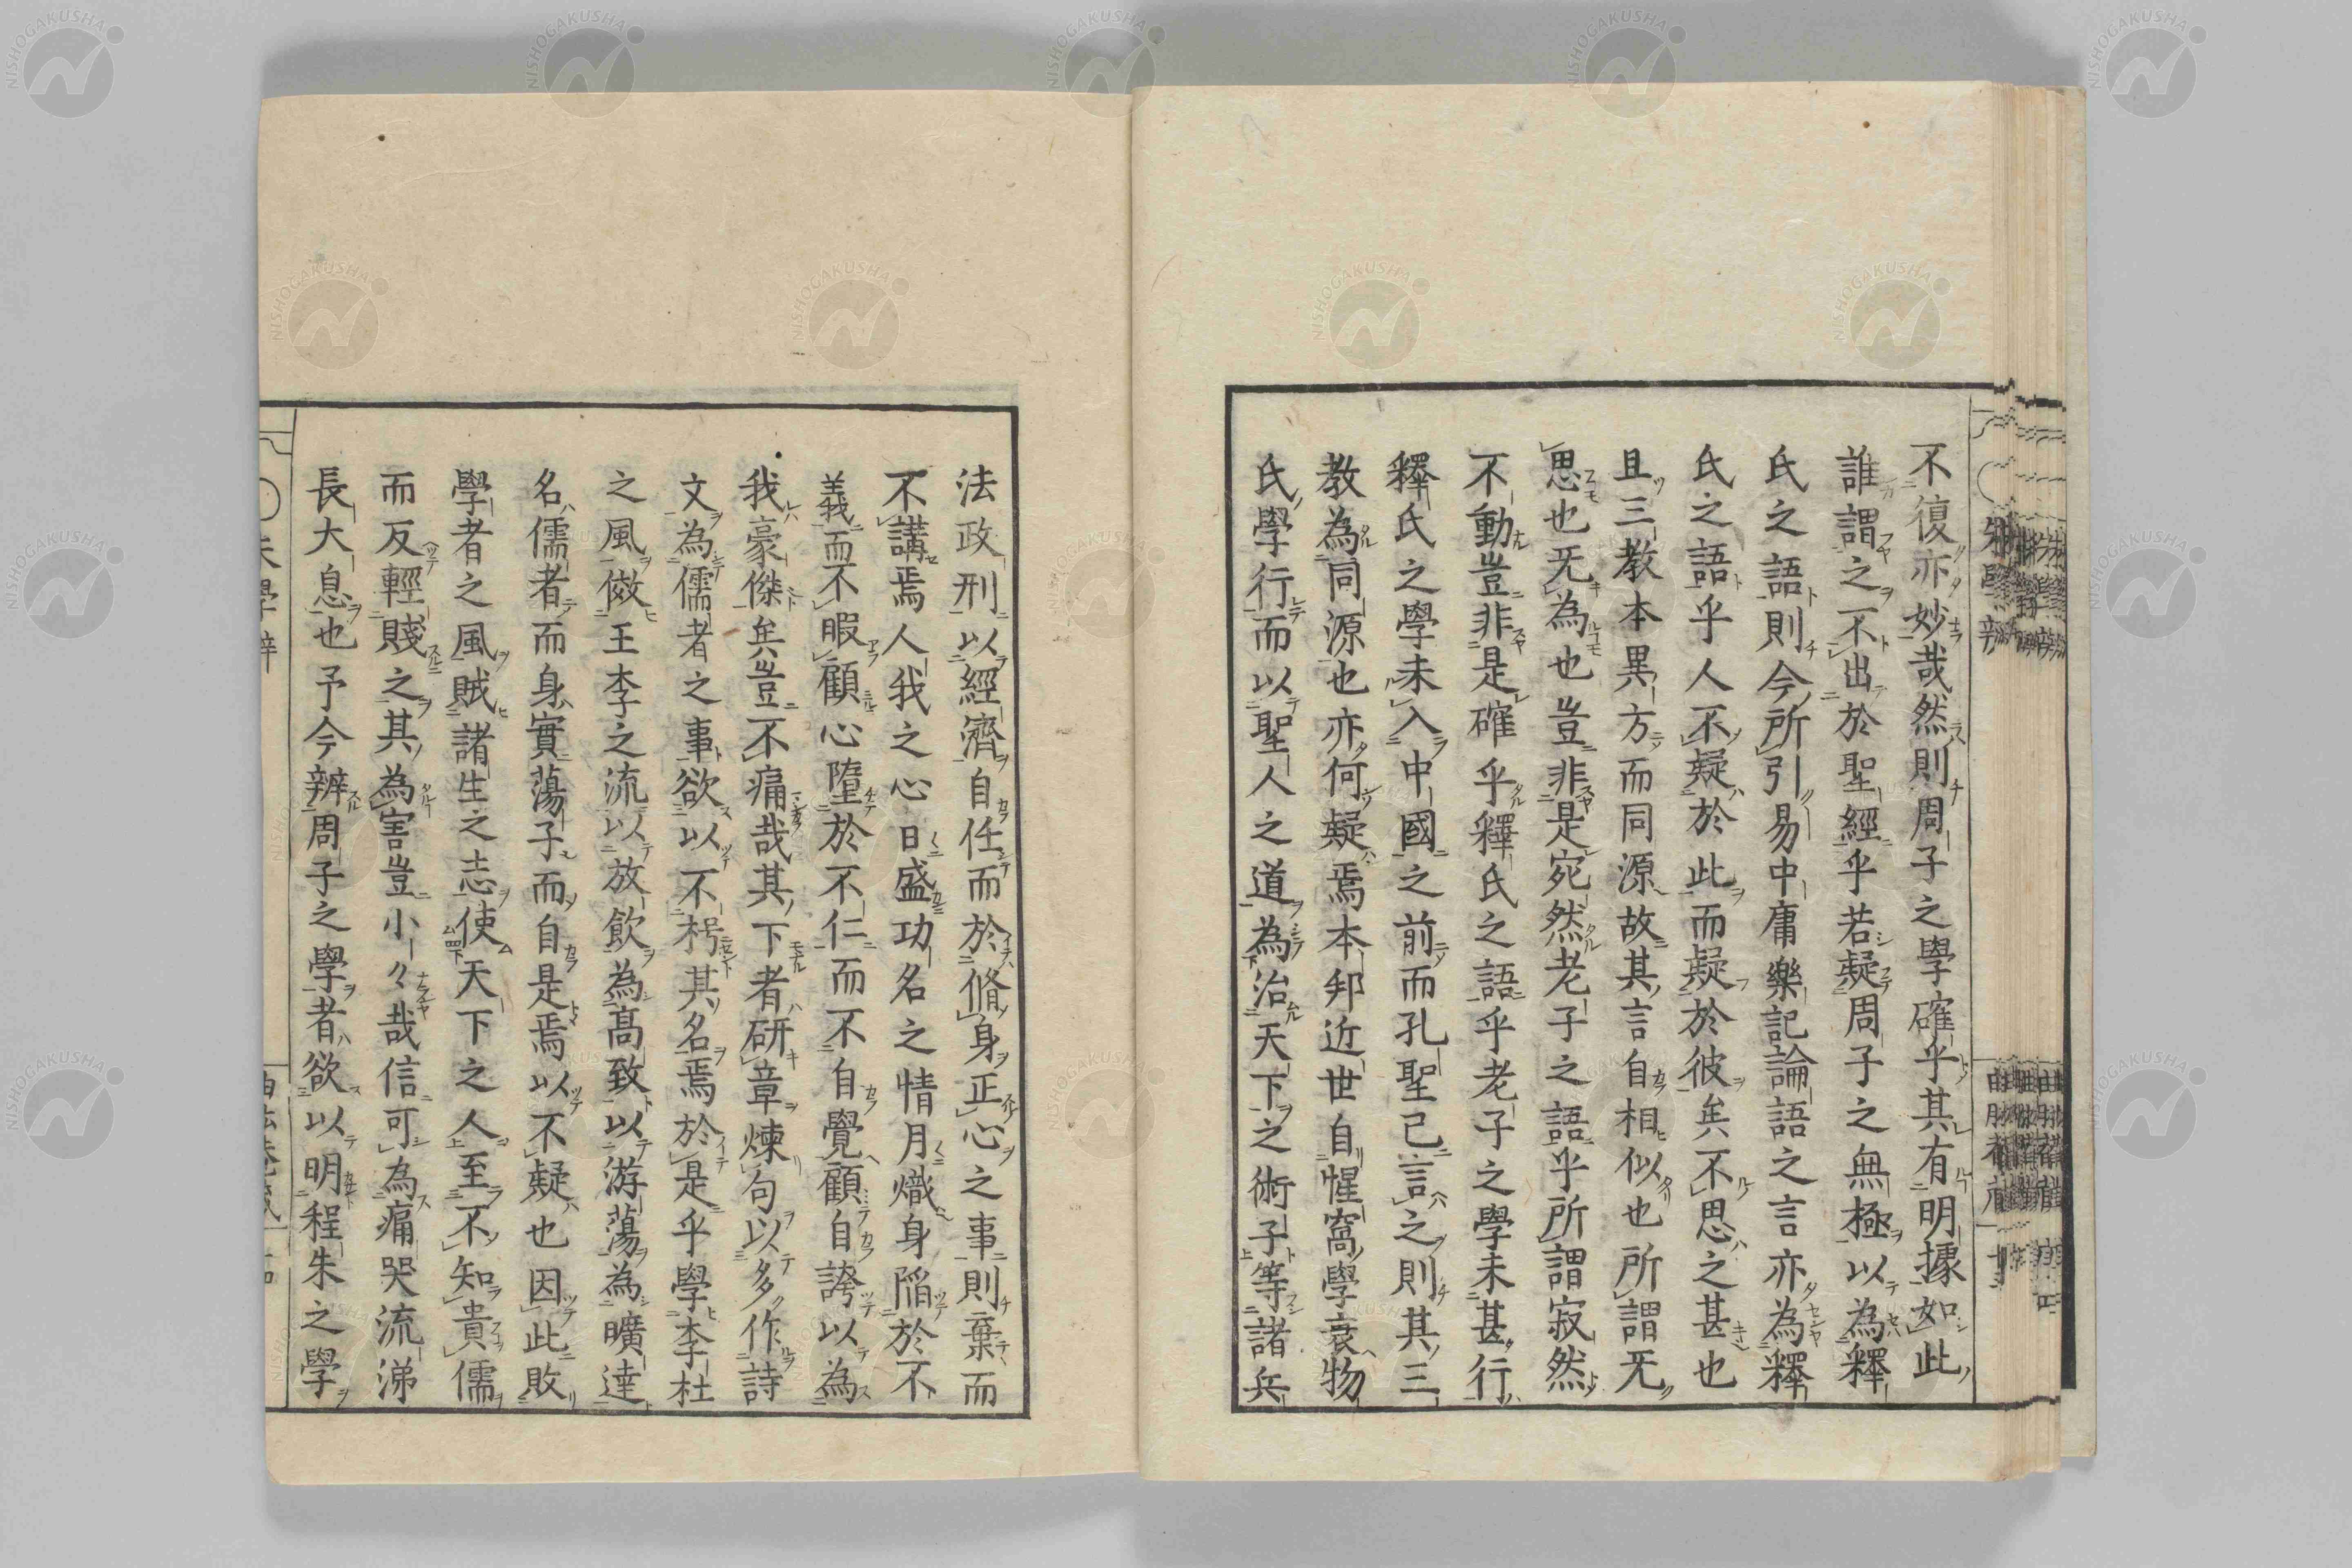 不復亦妙哉然則周子之學確乎其有明據如此
誰謂之不出於聖經乎若疑周子之無極以為釋
氏之語則今所引易中庸樂記論語之言亦為釋
氏之語乎人不疑於此而疑於彼矣不思之甚也
且三教本異方而同源故其言自相似也所謂无
思也无為也豈非是宛然老子之語乎所謂寂然
不動豈非是確乎釋氏之語乎老子之學未甚行
釋氏之學未入中國之前而孔聖已言之則其三
教為同源也亦何疑焉本邦近世自惺窩學衰物
氏學行而以聖人之道為治天下之術子等諸兵
法政刑以經濟自任而於脩身正心之事則棄而
不講焉人我之心日盛功名之情月熾身陷於不
義而不暇顧心墮於不仁而不自覺顧自誇以為
我豪傑矣豈不痛哉其下者研章煉句以多作詩
文為儒者之事欲以不朽其名焉於是乎學李杜
之風傚王李之流以放飲為高致以游蕩為曠達
名儒者而身實蕩子而自是焉以不疑也因此敗
學者之風賊諸生之志使天下之人至不知貴儒
而反輕賤之其為害豈小々哉信可為痛哭流涕
長大息也予今辨周子之學者欲以明程朱之學